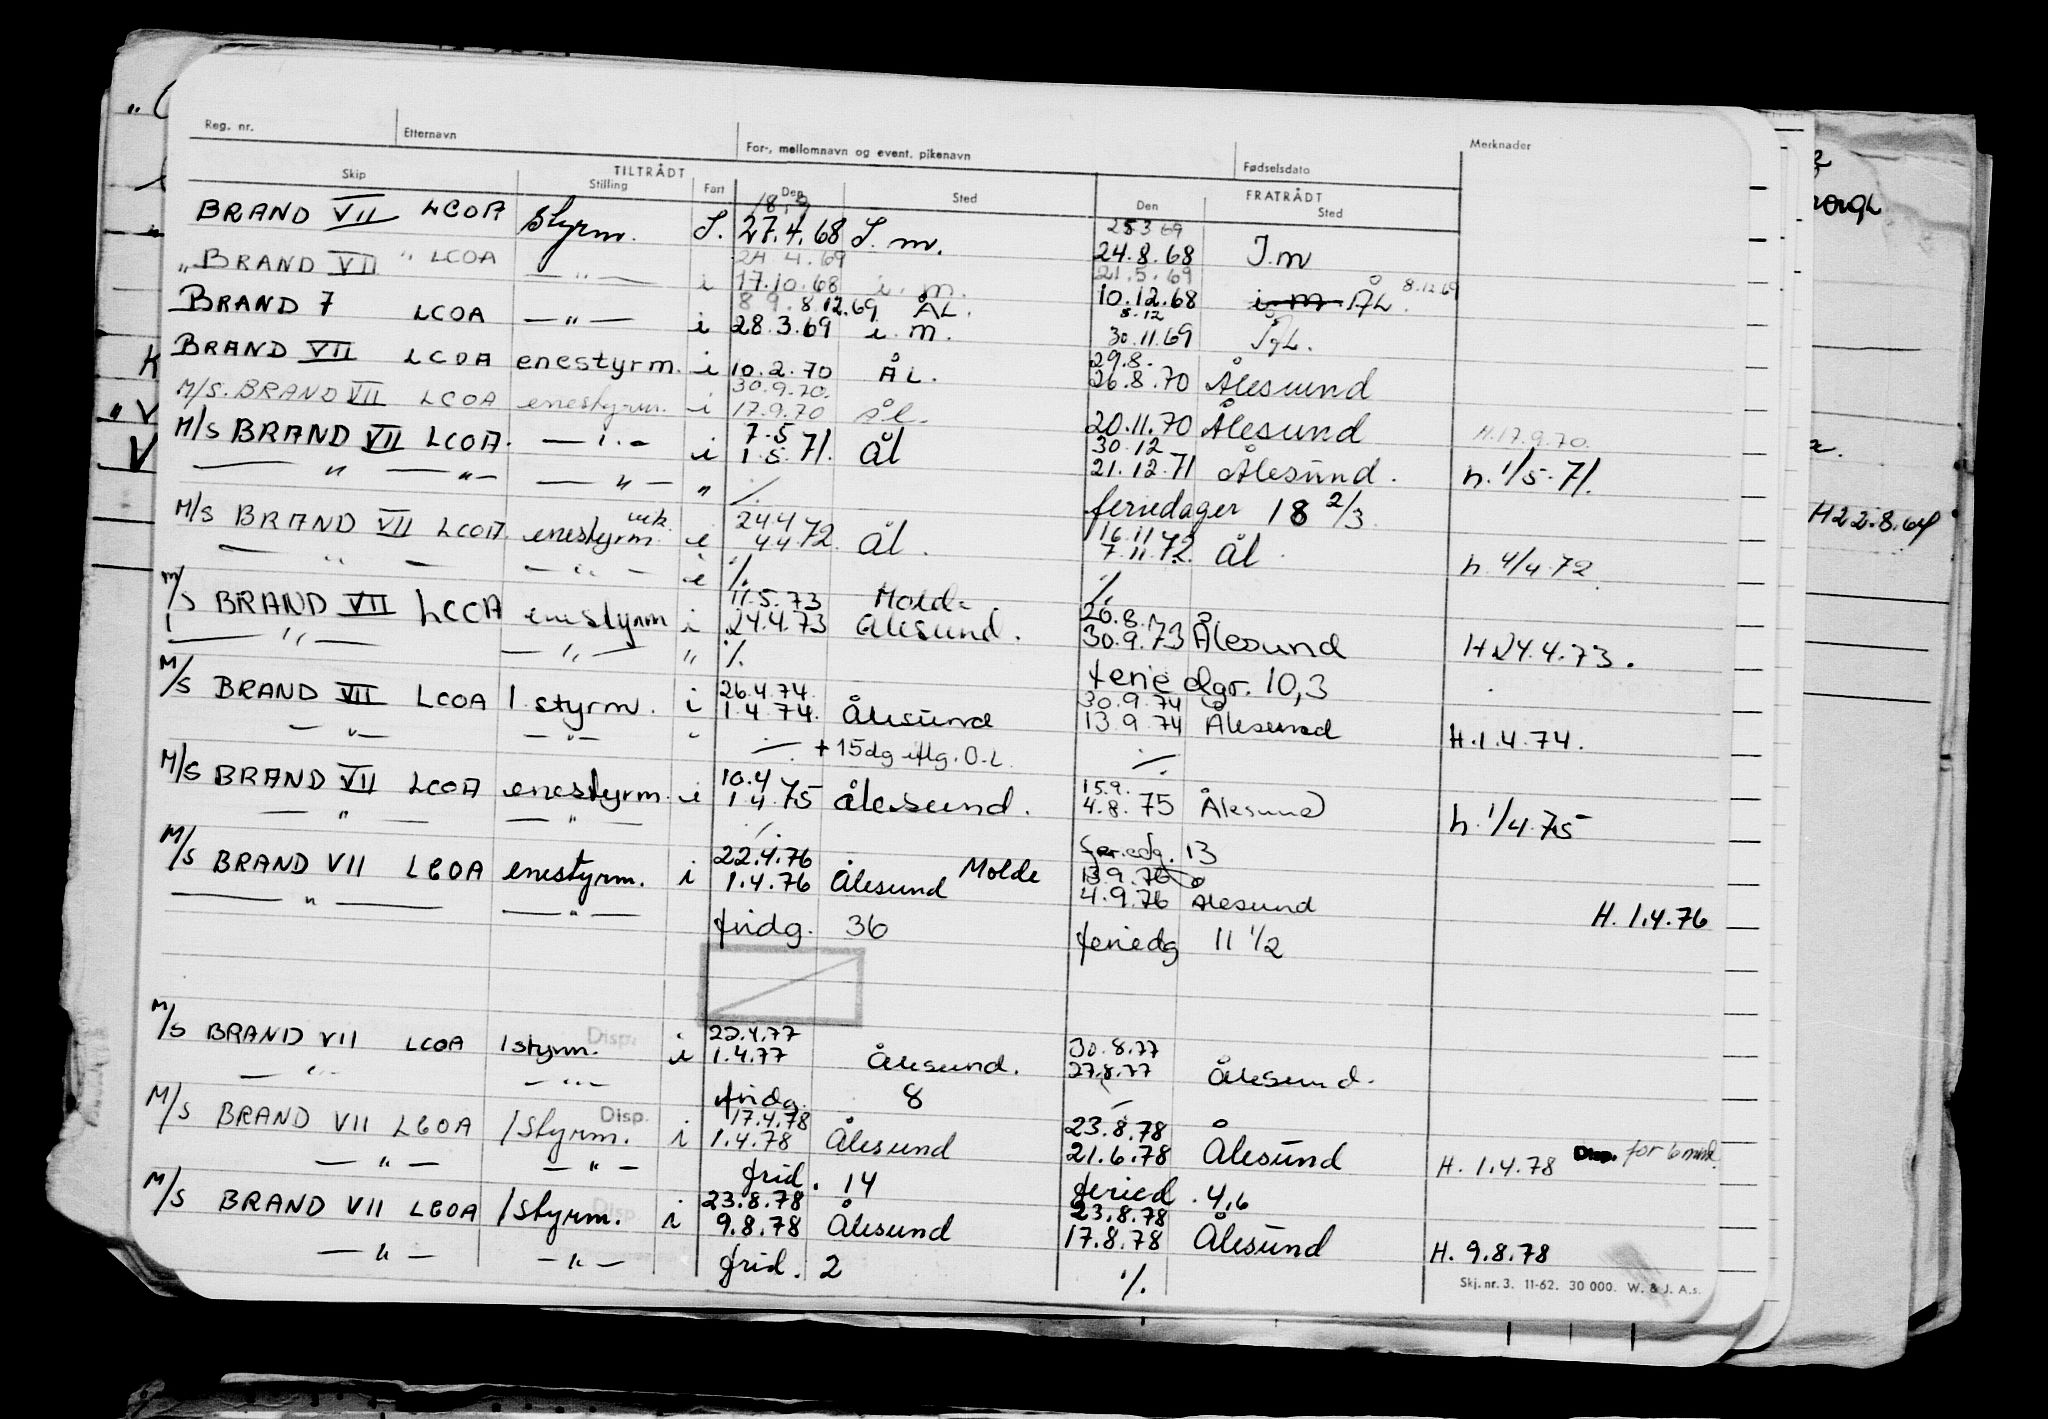 Reg. nr. Etternavn For-, mellomnavn og event. pikenavn Fødselsdato Merknader
TILTRÅDT FRATRÅDT
Skip Stilling Fart Den Sted Den Sted
25 3 69
BRAND VII LCOA styrm. S. 27.4.68 S. m. 24.8.68 I.m
24.4.69 21.5.69
„BRAND VII " LCOA — " — i 17.10.68 i. m. 10.12.68 i m ÅL. 8.12.69
8 9. 8.12.69 ÅL. 8.12
BRAND 7 LCOA — " — i 28.3.69 i. m. 30.11.69
29.8.
BRAND VII LCOA enestyrm. i 10.2.70 ÅL. 26.8.70 Ålesund
30.9.70.
M/S. BRAND VII LCOA enestyrm. i 17.9.70 ål. 20.11.70 Ålesund H.17.9.70.
7.5 30.12
M/S BRAND VII LCOA. — " — i 1.5.71. Ål 21.12.71 Ålesund. h. 1/5-71.
— " — " — — " — " ⁒ feriedager 18 2/3
24.4 16.11
M/S BRAND VII LCOA. enestyrm. i 4.4 72. Ål. 7.11.72 Ål h. 4/4.72.
— " — — " — i ⁒ ⁒
11.5.73 Molde 26.8.
M/S BRAND VII LCOA enestyrm i 24.4.73 Ålesund. 30.9.73 Ålesund H 24.4.73.
— " — — " — " ⁒ ferie dgr. 10,3
26.4.74. 30.9.74
M/S BRAND VII LCOA 1. styrm. i 1.4.74. Ålesund 13.9.74 Ålesund H.1.4.74.
— " — — " — " ⁒ +15dg iflg. O.L. ⁒
10.4 15.9.
M/S BRAND VII LCOA enestyrm. i 1.4.75 Ålesund. 4.8.75 Ålesund h. 1/4.75
— " — — " — ⁒ feriedg. 13
22.4.76 Molde 13.9.76
M/S BRAND VII LCOA enestyrm. i 1.4.76 Ålesund 4.9.76 Ålesund H. 1.4.76
— " — — " — fridg. 36 feriedg 11 1/2
22.4.77 30.8.77
M/S BRAND VII LCOA 1 styrm. Disp. i 1.4.77 Ålesund. 27.8.77 Ålesund.
— " — — " — fridg. 8 ⁒
17.4.78 23.8.78
M/S BRAND VII LCOA 1 styrm. Disp. i 1.4.78 Ålesund 21.6.78 Ålesund H. 1.4.78 Disp. for 6 mnd.
— " — — " — frid. 14 feried. 4,6
23.8.78 23.8.78
M/S BRAND VII LCOA 1 styrm. Disp. i 9.8.78 Ålesund 17.8.78 Ålesund H. 9.8.78
— " — — " — frid. 2 ⁒
Skj. nr. 3. 11-62. 30 000. W. & J. A.s.
H22.8.64